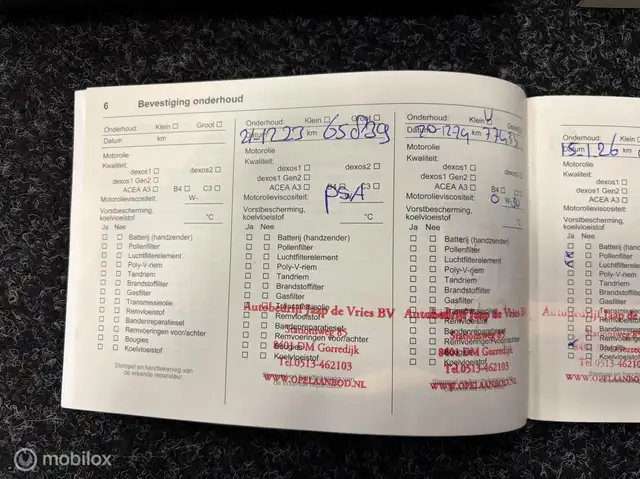 6 Bevestiging onderhoud
Onderhoud: Klein Groot
Datum km
Motorolie
Kwaliteit:
dexos1 dexos2
dexos1 Gen2
ACEA A3 B4 C3
Motorolieviscositeit: W-
Vorstbescherming,
koelvloeistof °C
Ja Nee
Batterij (handzender)
Pollenfilter
Luchtfilterelement
Poly-V-riem
Tandriem
Brandstoffilter
Gasfilter
Transmissieolie
Remvloeistof
Bandenreparatieset
Remvoeringen voor/achter
Bougies
Koelvloeistof
Stempel en handtekening van
de erkende reparateur.
Onderhoud: Klein Groot
km
Motorolie
Kwaliteit:
dexos1 dexos2
dexos1 Gen2
ACEA A3 B4 C3
PSA
Motorolieviscositeit:
Vorstbescherming,
koelvloeistof °C
Ja Nee
Batterij (handzender)
Pollenfilter
Luchtfilterelement
Poly-V-riem
Tandriem
Brandstoffilter
Gasfilter
Transmissieolie
Autobedrijf Jaap de Vries BV
Remvloeistof
Stationsweg 85
Bandenreparatieset
Remvoeringen voor/achter
8401 DM Gorredijk
Tel.0513-462103
Koelvloeistof
WWW.OPELAANBOD.NL
Onderhoud: Klein Groot
Datum 20-12-24 km
Motorolie
Kwaliteit:
dexos1 dexos2
dexos1 Gen2
ACEA A3 B4 C3
Motorolieviscositeit: 0 W-30
Vorstbescherming,
koelvloeistof °C
Ja Nee
Batterij (handzender)
Pollenfilter
Luchtfilterelement
Poly-V-riem
Tandriem
Brandstoffilter
Gasfilter
Autobedrijf Jaap de Vries BV
Remvloeistof
Stationsweg 85
Bandenreparatieset
Remvoeringen voor/achter
8401 DM Gorredijk
Tel.0513-462103
Koelvloeistof
WWW.OPELAANBOD.NL
Onderhoud: Klein
Motorolie
Kwaliteit:
dexos1
dexos1 Gen2
ACEA A3
Motorolieviscositeit:
Vorstbescherming,
koelvloeistof
Ja Nee
Batterij (handzender)
Pollenfilter
Luchtfilterelement
Poly-V-riem
Tandriem
Brandstoffilter
Gasfilter
Koelvloeistof
mobilox